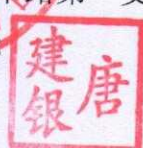 唐
建银